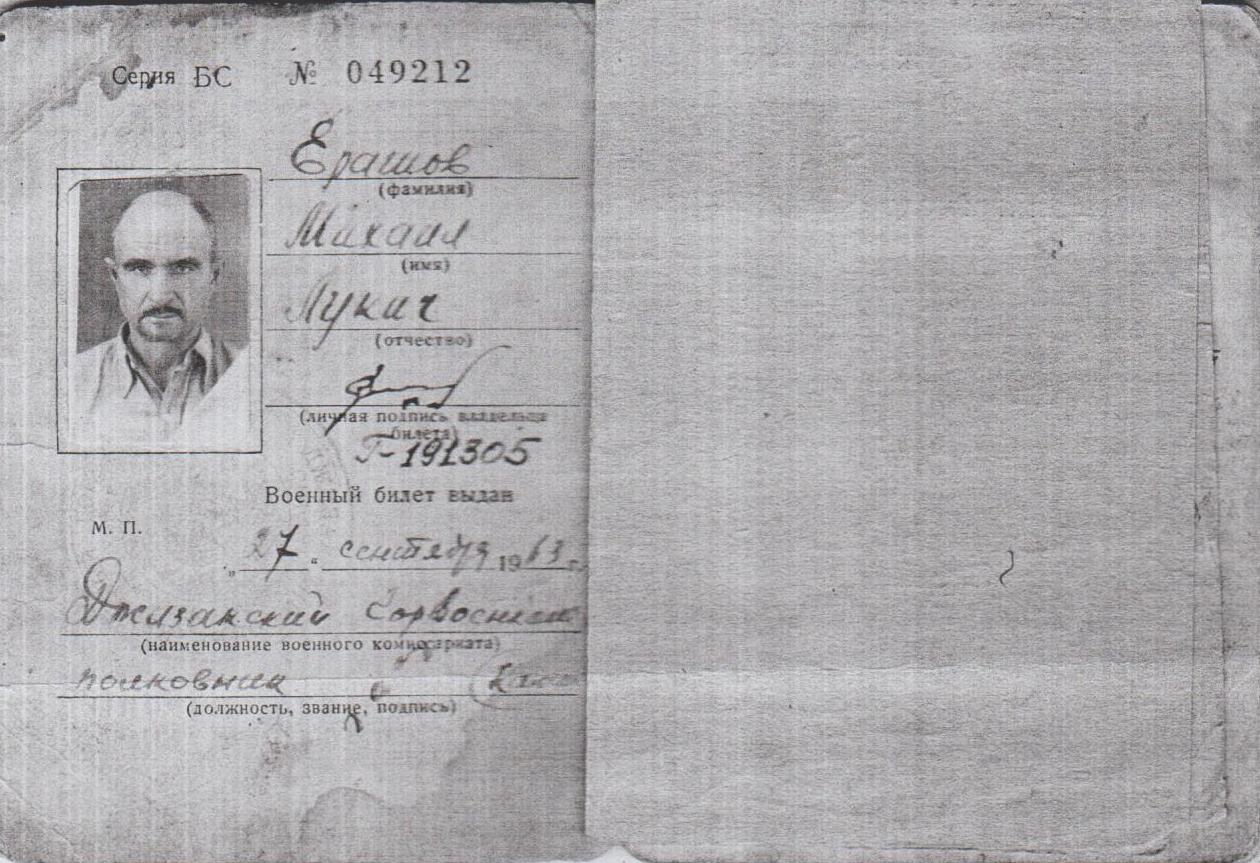 Серия БС № 049212
Ерашов
(фамилия)
Михаил
(имя)
Лукич
(отчество)
(личная подпись владельца
билета)
Г-191305
Военный билет выдан
М. П.
„27“ сентября 1963 г.
(наименование военного комиссариата)
полковник
(должность, звание, подпись)